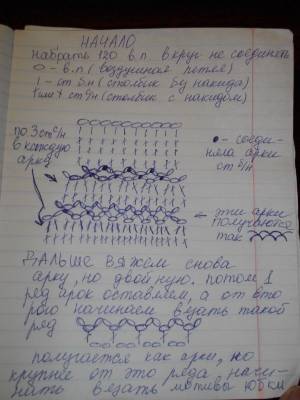 НАЧАЛО
набрать 120 в.п. в круг не соединять
о - в.п (воздушная петля)
1 - ст б/н (столбик без накида)
ст с/н (столбик с накидом)
по 3 ст с/н
в каждую
арку
• - соеди-
няла арки
ст б/н
← эти арки
получаются
так
Дальше вяжем снова
арку, но двойную. потом 1
ряд арок оставляем, а от вто
рого начинаем вязать такой
ряд
получается как арки, но
крупнее от это ряда начи-
нить вязать мотивы юбки